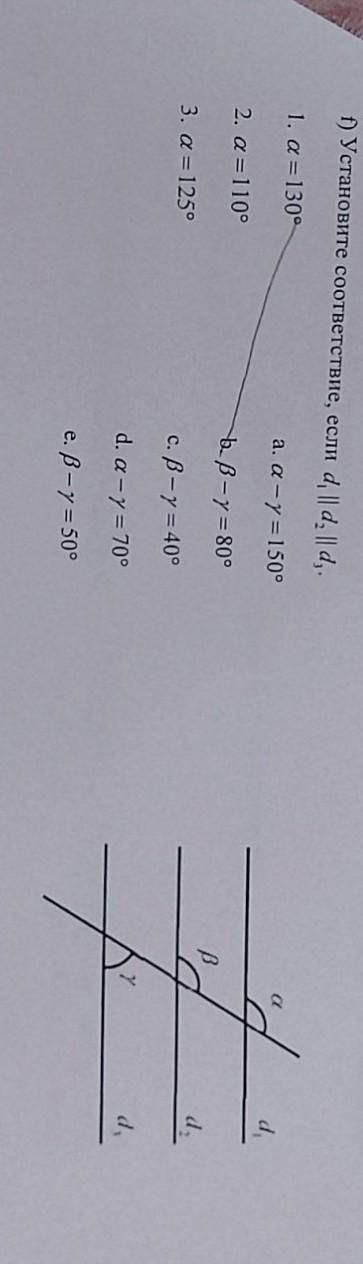 f) Установите соответствие, если d₁ || d₂ || d₃.
1. α = 130°
2. α = 110°
3. α = 125°
a. α − γ = 150°
b. β − γ = 80°
c. β − γ = 40°
d. α − γ = 70°
e. β − γ = 50°
α
d₁
β
d₂
γ
d₃